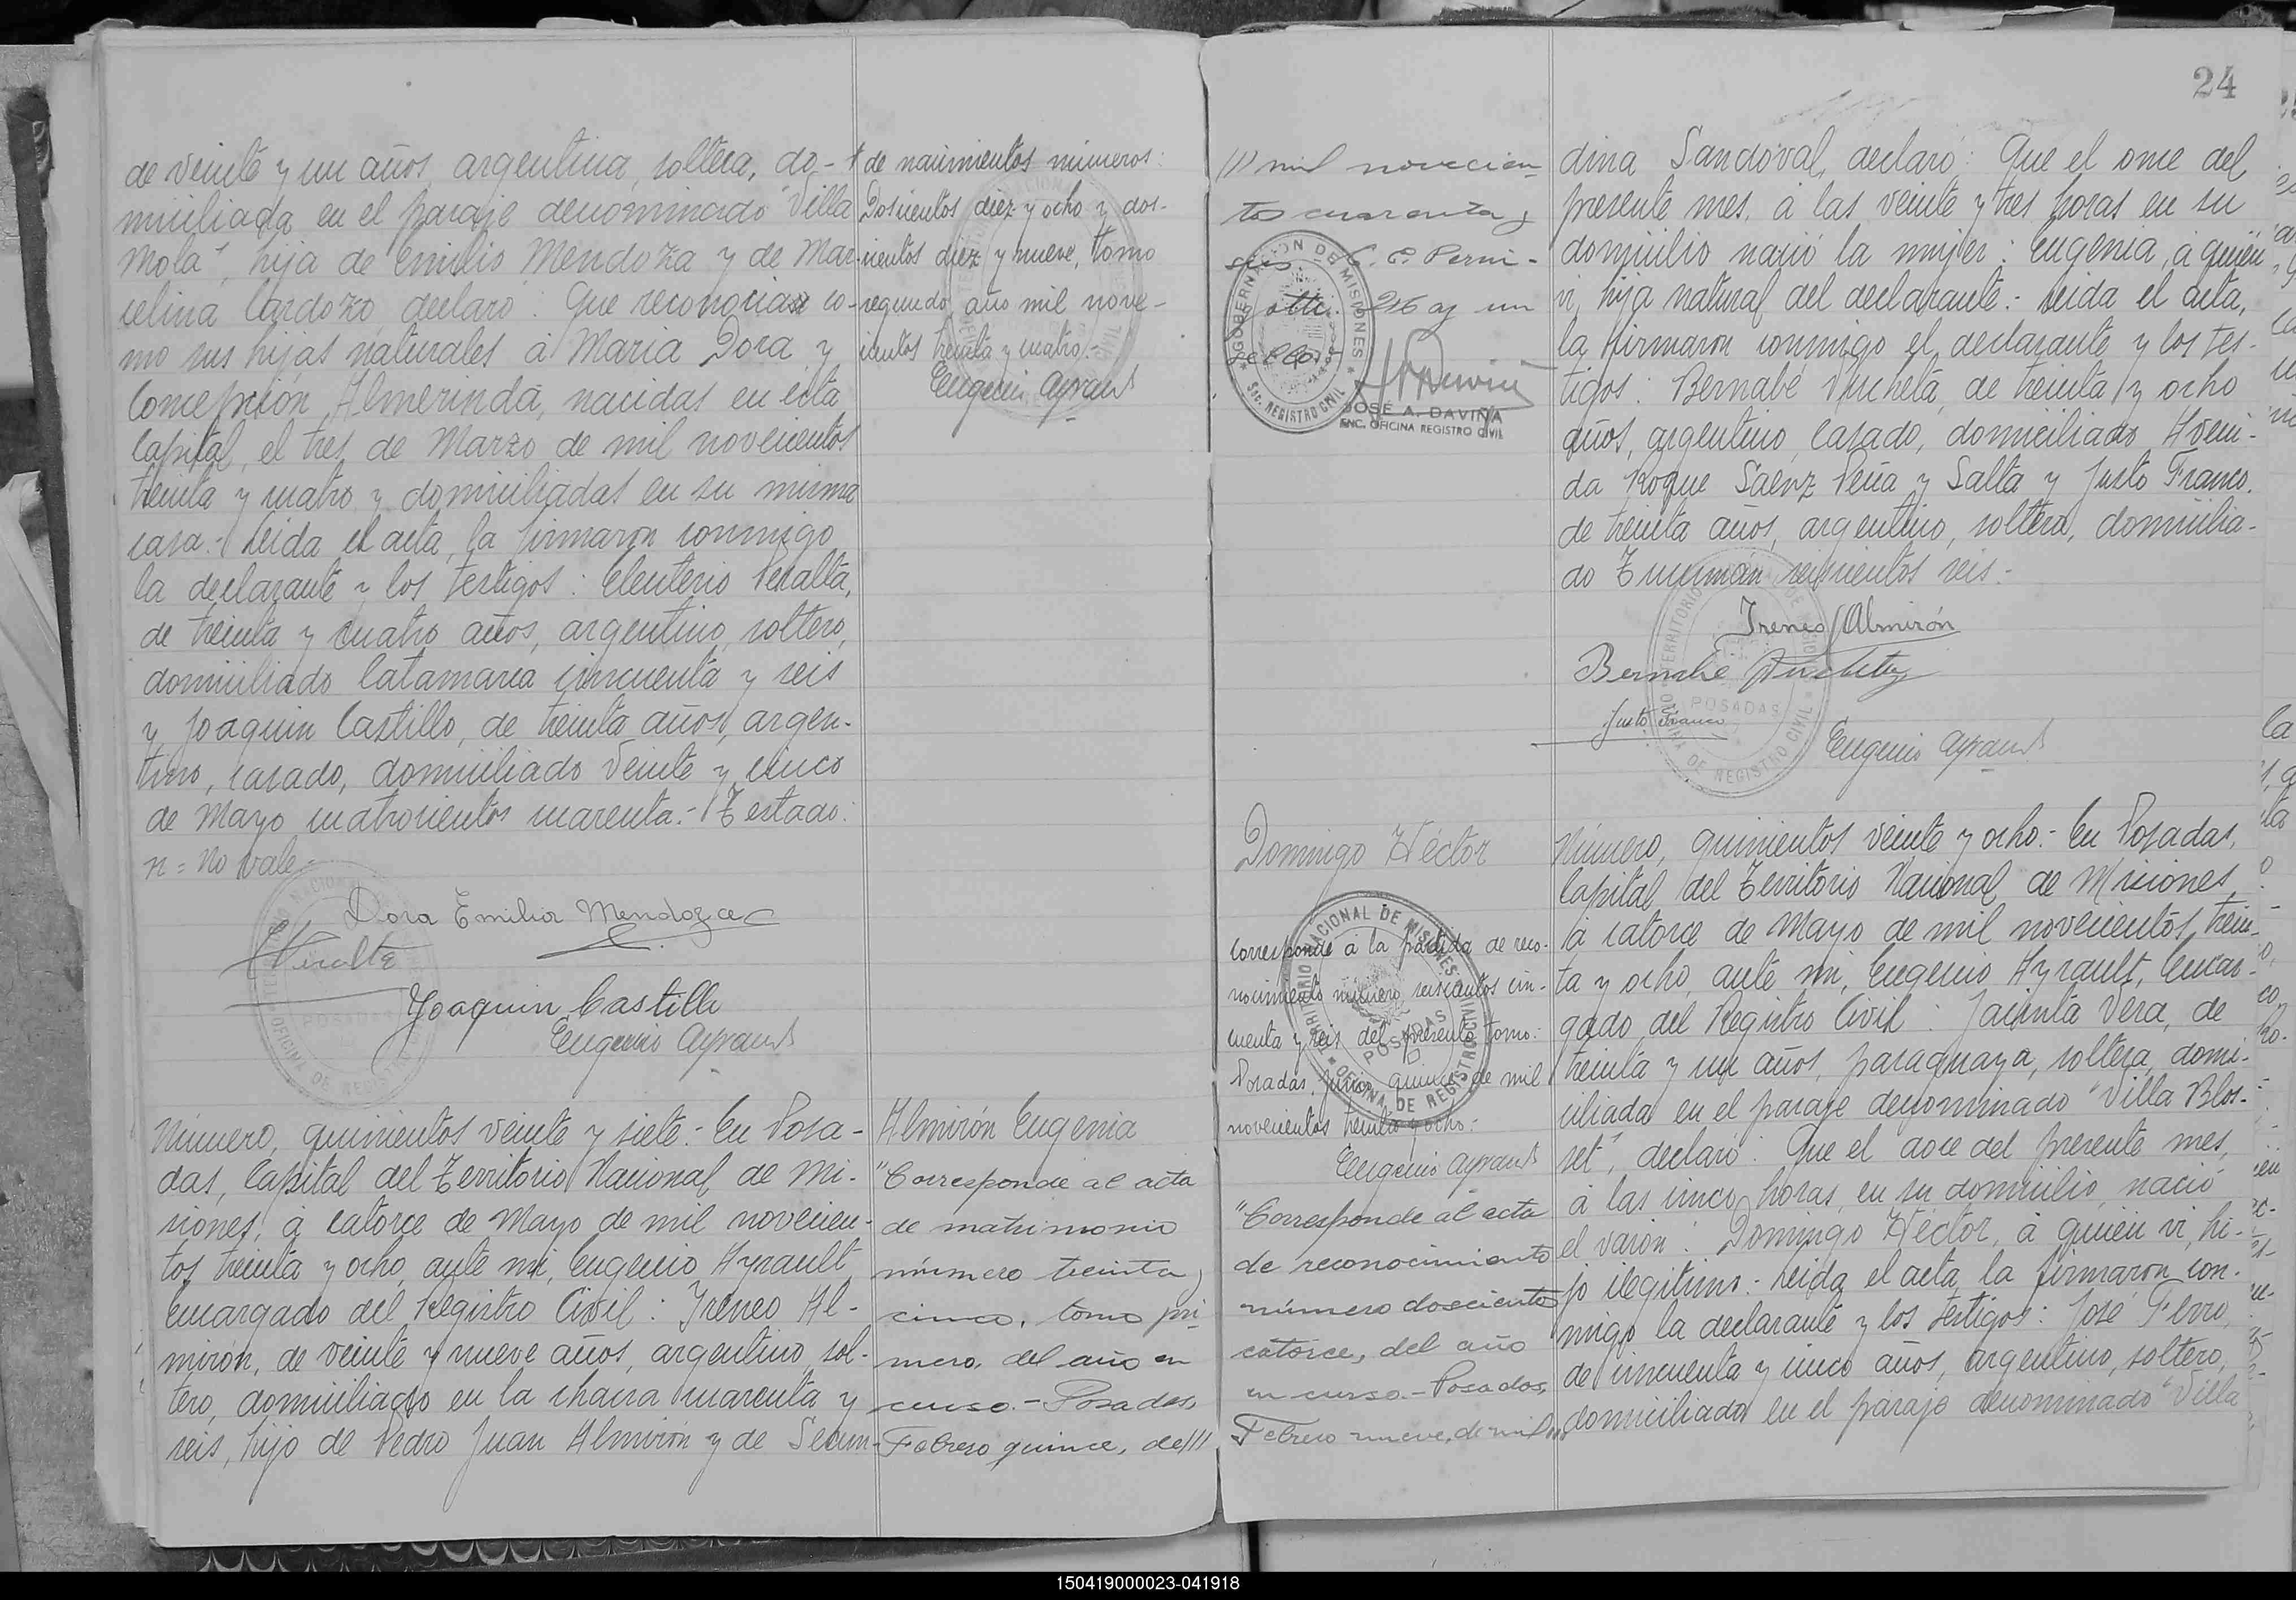 24
de veinte y un años, argentina, soltera, do-
miciliada en el paraje denominado "Villa
Mola", hija de Emilio Mendoza y de Mar-
celina Cardozo, declaró: Que reconocian co-
mo sus hijas naturales á Maria Dora y
Concepción Almerinda, nacidas en esta
Capital, el tres de Marzo de mil novecientos
treinta y cuatro y domiciliadas en su misma
casa.- Leida el acta, la firmaron conmigo
la declarante y los testigos: Eleuterio Peralta,
de treinta y cuatro años, argentino, soltero,
domiciliado Catamarca cincuenta y seis
y Joaquin Castillo, de treinta años, argen-
tino, casado, domiciliado Veinte y cinco
de Mayo cuatrocientos cuarenta.- Testado:
n = No vale.-
Dora Emilia Mendoza
Peralta
Joaquin Castillo
Eugenio Ayrault
de nacimientos números:
Doscientos diez y ocho y dos-
cientos diez y nueve, tomo
segundo, año mil nove-
cientos treinta y cuatro.-
Eugenio Ayrault
Número, quinientos veinte y siete.- En Posa-
das, Capital del Territorio Nacional de Mi-
siones, á catorce de Mayo de mil novecien-
tos treinta y ocho, ante mi, Eugenio Ayrault
Encargado del Registro Civil: Ireneo Al-
mirón, de veinte y nueve años, argentino, sol-
tero, domiciliado en la chacra cuarenta y
seis, hijo de Pedro Juan Almirón y de Secun-
Almirón Eugenia
"Corresponde al acta
de matrimonio
número treinta y
cinco, tomo pri-
mero, del año en
curso.- Posadas,
Febrero quince, de///
/// mil novecien-
tos cuarenta y
seis
GOBERNACION DE MISIONES
Sec. REGISTRO CIVIL
JOSÉ A. DAVIÑA
ENC. OFICINA REGISTRO CIVIL
dina Sandoval, declaró: Que el once del
presente mes, á las veinte y tres horas en su
domicilio nació la mujer: Eugenia, á quien
vi, hija natural del declarante.- Leida el acta,
la firmaron conmigo el declarante y los tes-
tigos: Bernabé Pucheta, de treinta y ocho
años, argentino, casado, domiciliado Aveni-
da Roque Saenz Peña y Salta y Justo Franco,
de treinta años, argentino, soltero, domicilia-
do Tucumán seiscientos seis.-
Ireneo Almirón
Bernabe Pucheta
Justo Franco
Eugenio Ayrault
POSADAS
Domingo Héctor
Corresponde á la partida de reco-
nocimiento número, seiscientos cin-
cuenta y seis del presente tomo:
Posadas, Junio quince de mil
novecientos treinta y ocho:-
Eugenio Ayrault
"Corresponde al acta
de reconocimiento
número doscientos
catorce, del año
en curso.- Posadas,
Febrero nueve, de mil,,
Número, quinientos veinte y ocho.- En Posadas,
Capital del Territorio Nacional de Misiones,
á catorce de Mayo de mil novecientos trein-
ta y ocho, ante mi, Eugenio Ayrault, Encar-
gado del Registro Civil: Jacinta Vera, de
treinta y un años, paraguaya, soltera, domi-
ciliada en el paraje denominado "Villa Blos-
set", declaró: Que el doce del presente mes,
á las cinco horas, en su domicilio, nació
el varón: Domingo Héctor, á quien vi, hi-
jo ilegitimo.- Leida el acta la firmaron con-
migo la declarante y los testigos: José Fevro,
de cincuenta y cinco años, argentino, soltero,
domiciliado en el paraje denominado "Villa
150419000023-041918